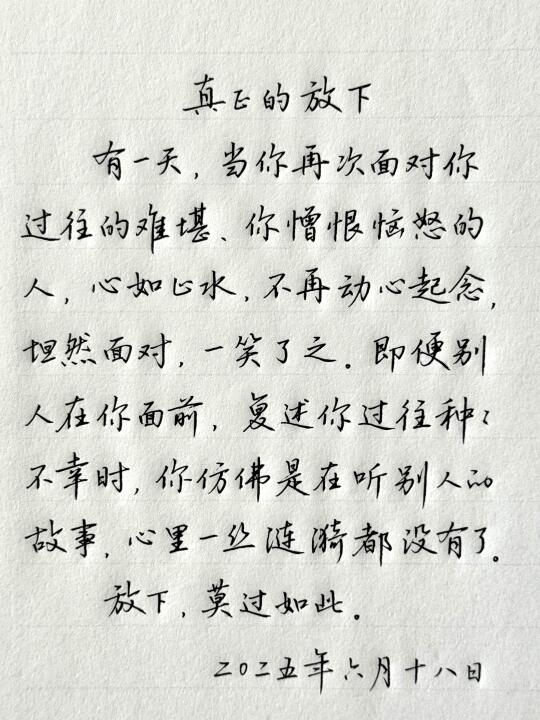 真正的放下
有一天，当你再次面对你
过往的难堪、你憎恨恼怒的
人，心如止水，不再动心起念，
坦然面对，一笑了之。即便别
人在你面前，复述你过往种〻
不幸时，你仿佛是在听别人的
故事，心里一丝涟漪都没有了。
放下，莫过如此。
二〇二五年六月十八日